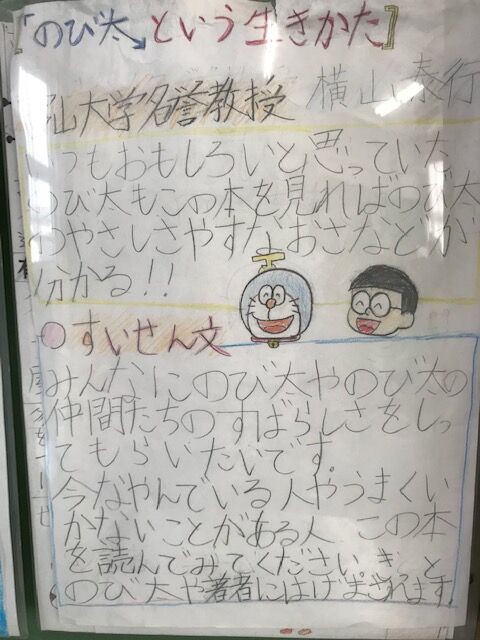 「のび太」という生きかた
山大学名誉教授 横山泰行
いつもおもしろいと思っていた
のび太もこの本を見ればのび太
のやさしさやすなおさなどが
分かる!!
すいせん文
みんなにのび太やのび太の
仲間たちのすばらしさをしっ
てもらいたいです。
今なやんでいる人やうまくい
かないことがある人 この本
を読んでみてください。きっと
のび太や著者にはげまされます